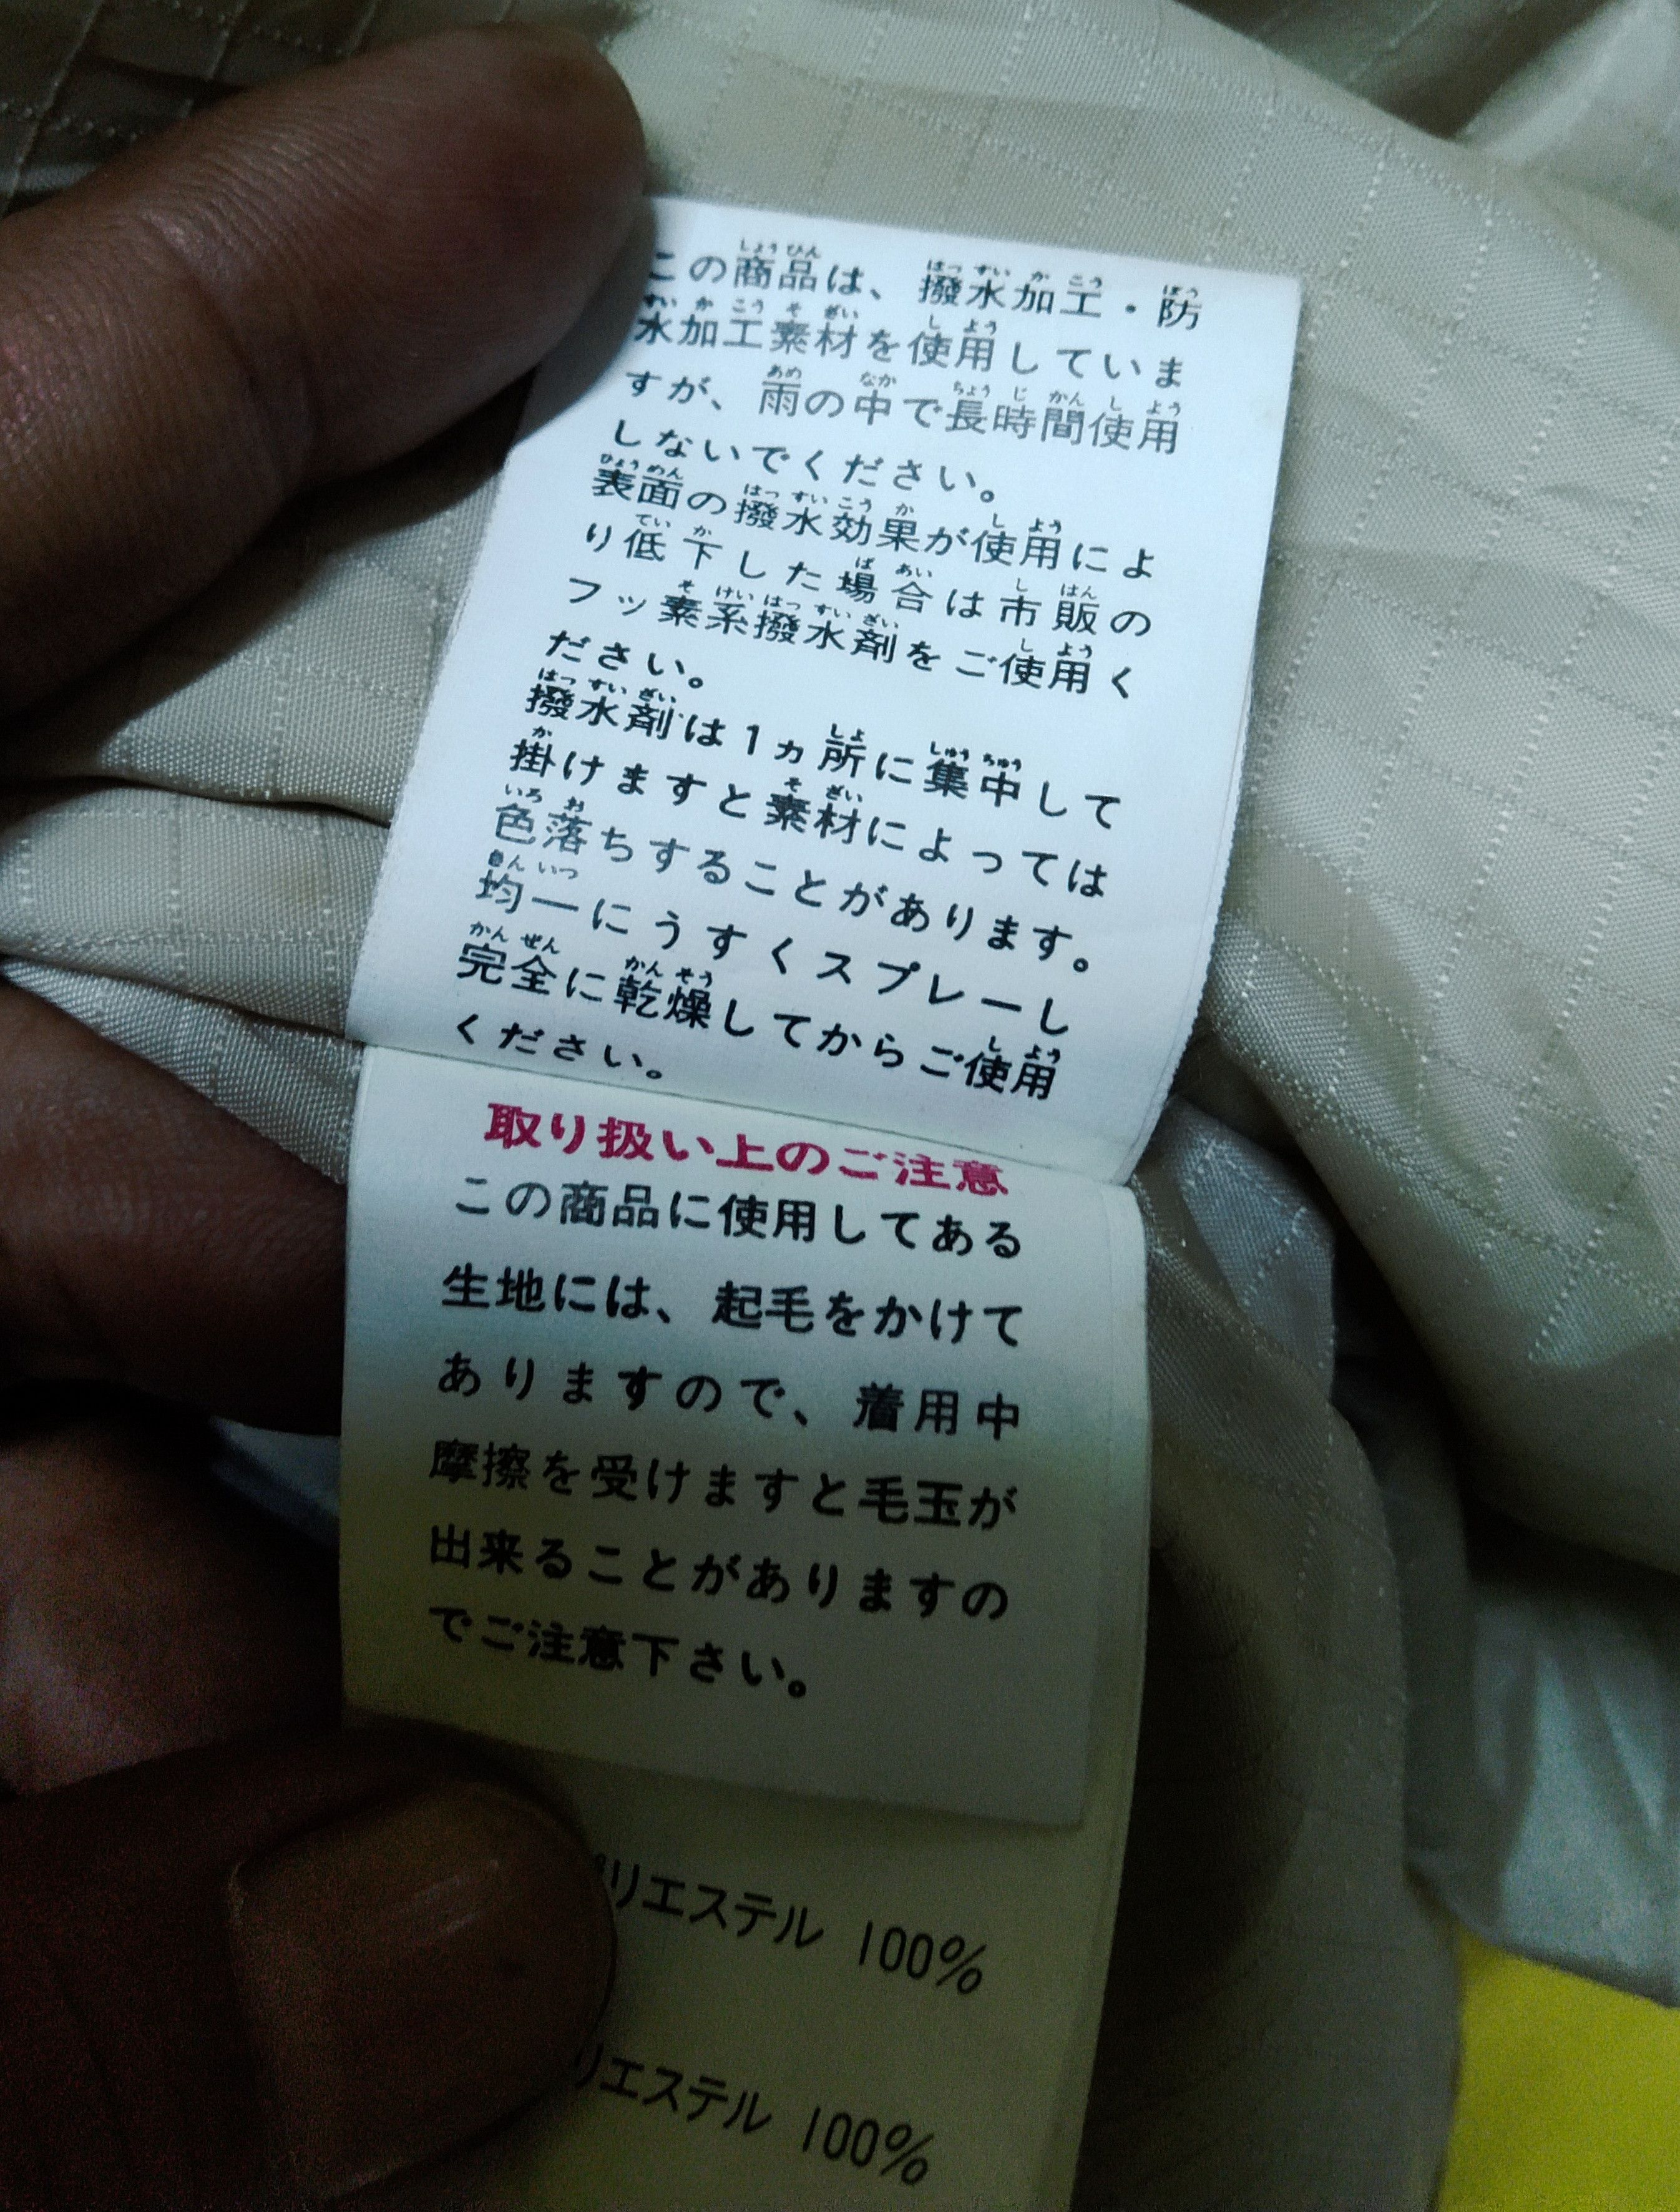 この商品は、撥水加工・防
水加工素材を使用していま
すが、雨の中で長時間使用
しないでください。
表面の撥水効果が使用によ
り低下した場合は市販の
フッ素系撥水剤をご使用く
ださい。
撥水剤は1ヵ所に集中して
掛けますと素材によっては
色落ちすることがあります。
均一にうすくスプレーし
完全に乾燥してからご使用
ください。
取り扱い上のご注意
この商品に使用してある
生地には、起毛をかけて
ありますので、着用中
摩擦を受けますと毛玉が
出来ることがありますの
でご注意下さい。
ポリエステル 100%
リエステル 100%